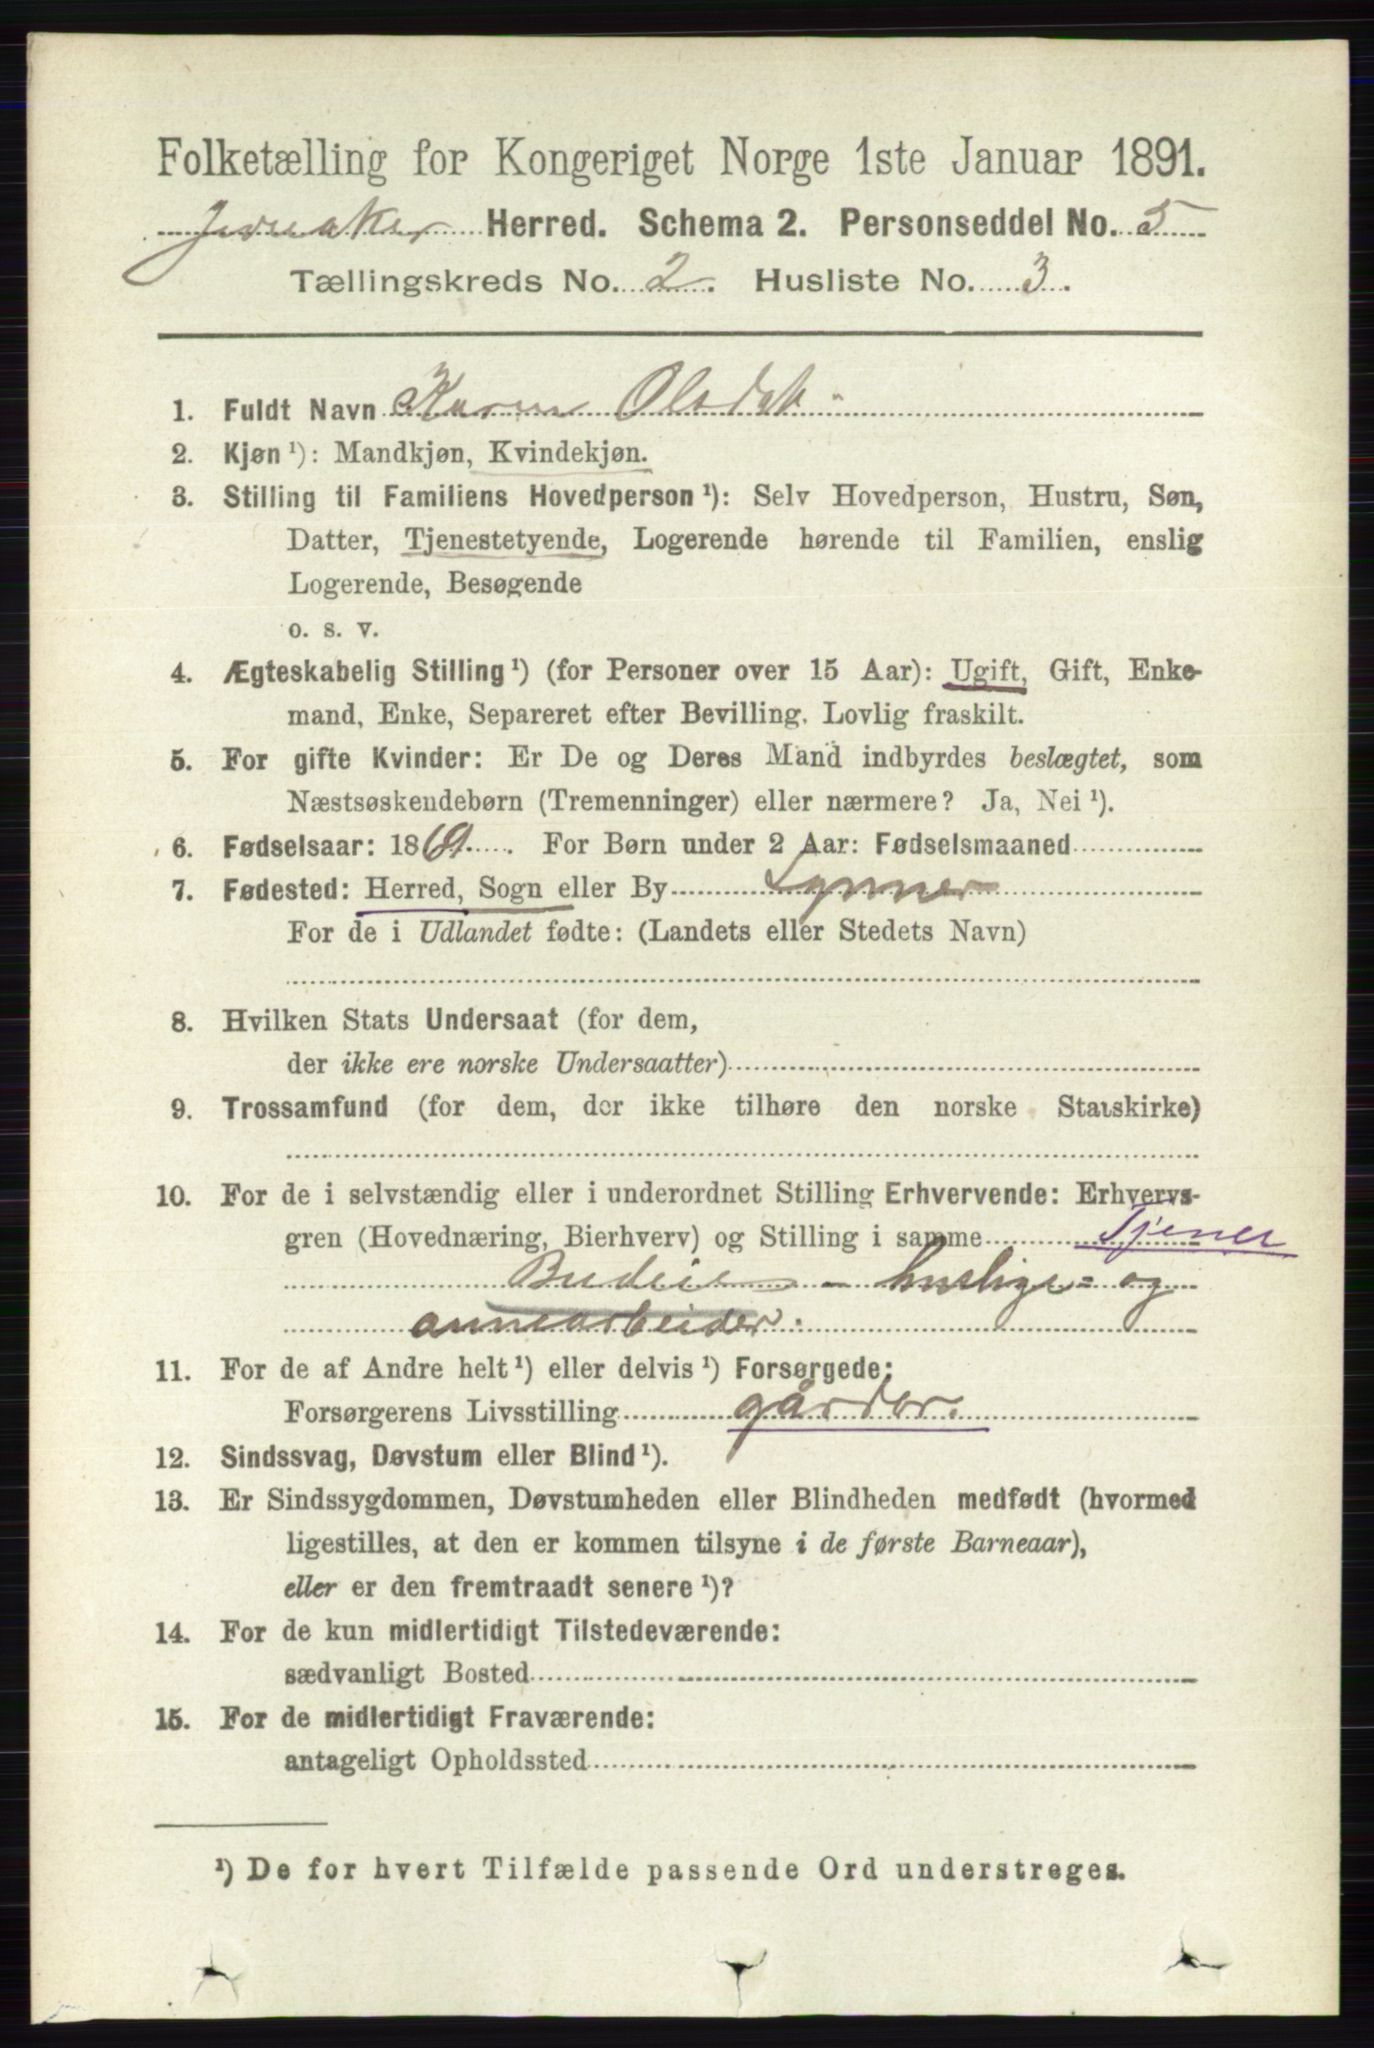 Folketælling for Kongeriget Norge 1ste Januar 1891.
Jevnaker Herred. Schema 2. Personseddel No. 5
Tællingskreds No. 2. Husliste No. 3.
1. Fuldt Navn Karen Olsdat
2. Kjøn ¹): Mandkjøn, Kvindekjøn.
3. Stilling til Familiens Hovedperson ¹): Selv Hovedperson, Hustru, Søn,
Datter, Tjenestetyende, Logerende hørende til Familien, enslig
Logerende, Besøgende
o. s. v.
4. Ægteskabelig Stilling ¹) (for Personer over 15 Aar): Ugift, Gift, Enke-
mand, Enke, Separeret efter Bevilling. Lovlig fraskilt.
5. For gifte Kvinder: Er De og Deres Mand indbyrdes beslægtet, som
Næstsøskendebørn (Tremenninger) eller nærmere? Ja, Nei ¹).
6. Fødselsaar: 1869. For Børn under 2 Aar: Fødselsmaaned
7. Fødested: Herred, Sogn eller By Lynner
For de i Udlandet fødte: (Landets eller Stedets Navn)
8. Hvilken Stats Undersaat (for dem,
der ikke ere norske Undersaatter)
9. Trossamfund (for dem, der ikke tilhøre den norske Statskirke)
10. For de i selvstændig eller i underordnet Stilling Erhvervende: Erhvervs-
gren (Hovednæring, Bierhverv) og Stilling i samme Tjener
Budeie - huslige- og
annearbeider.
11. For de af Andre helt ¹) eller delvis ¹) Forsørgede:
Forsørgerens Livsstilling gårdbr.
12. Sindssvag, Døvstum eller Blind ¹).
13. Er Sindssygdommen, Døvstumheden eller Blindheden medfødt (hvormed
ligestilles, at den er kommen tilsyne i de første Barneaar),
eller er den fremtraadt senere ¹)?
14. For de kun midlertidigt Tilstedeværende:
sædvanligt Bosted
15. For de midlertidigt Fraværende:
antageligt Opholdssted
¹) De for hvert Tilfælde passende Ord understreges.